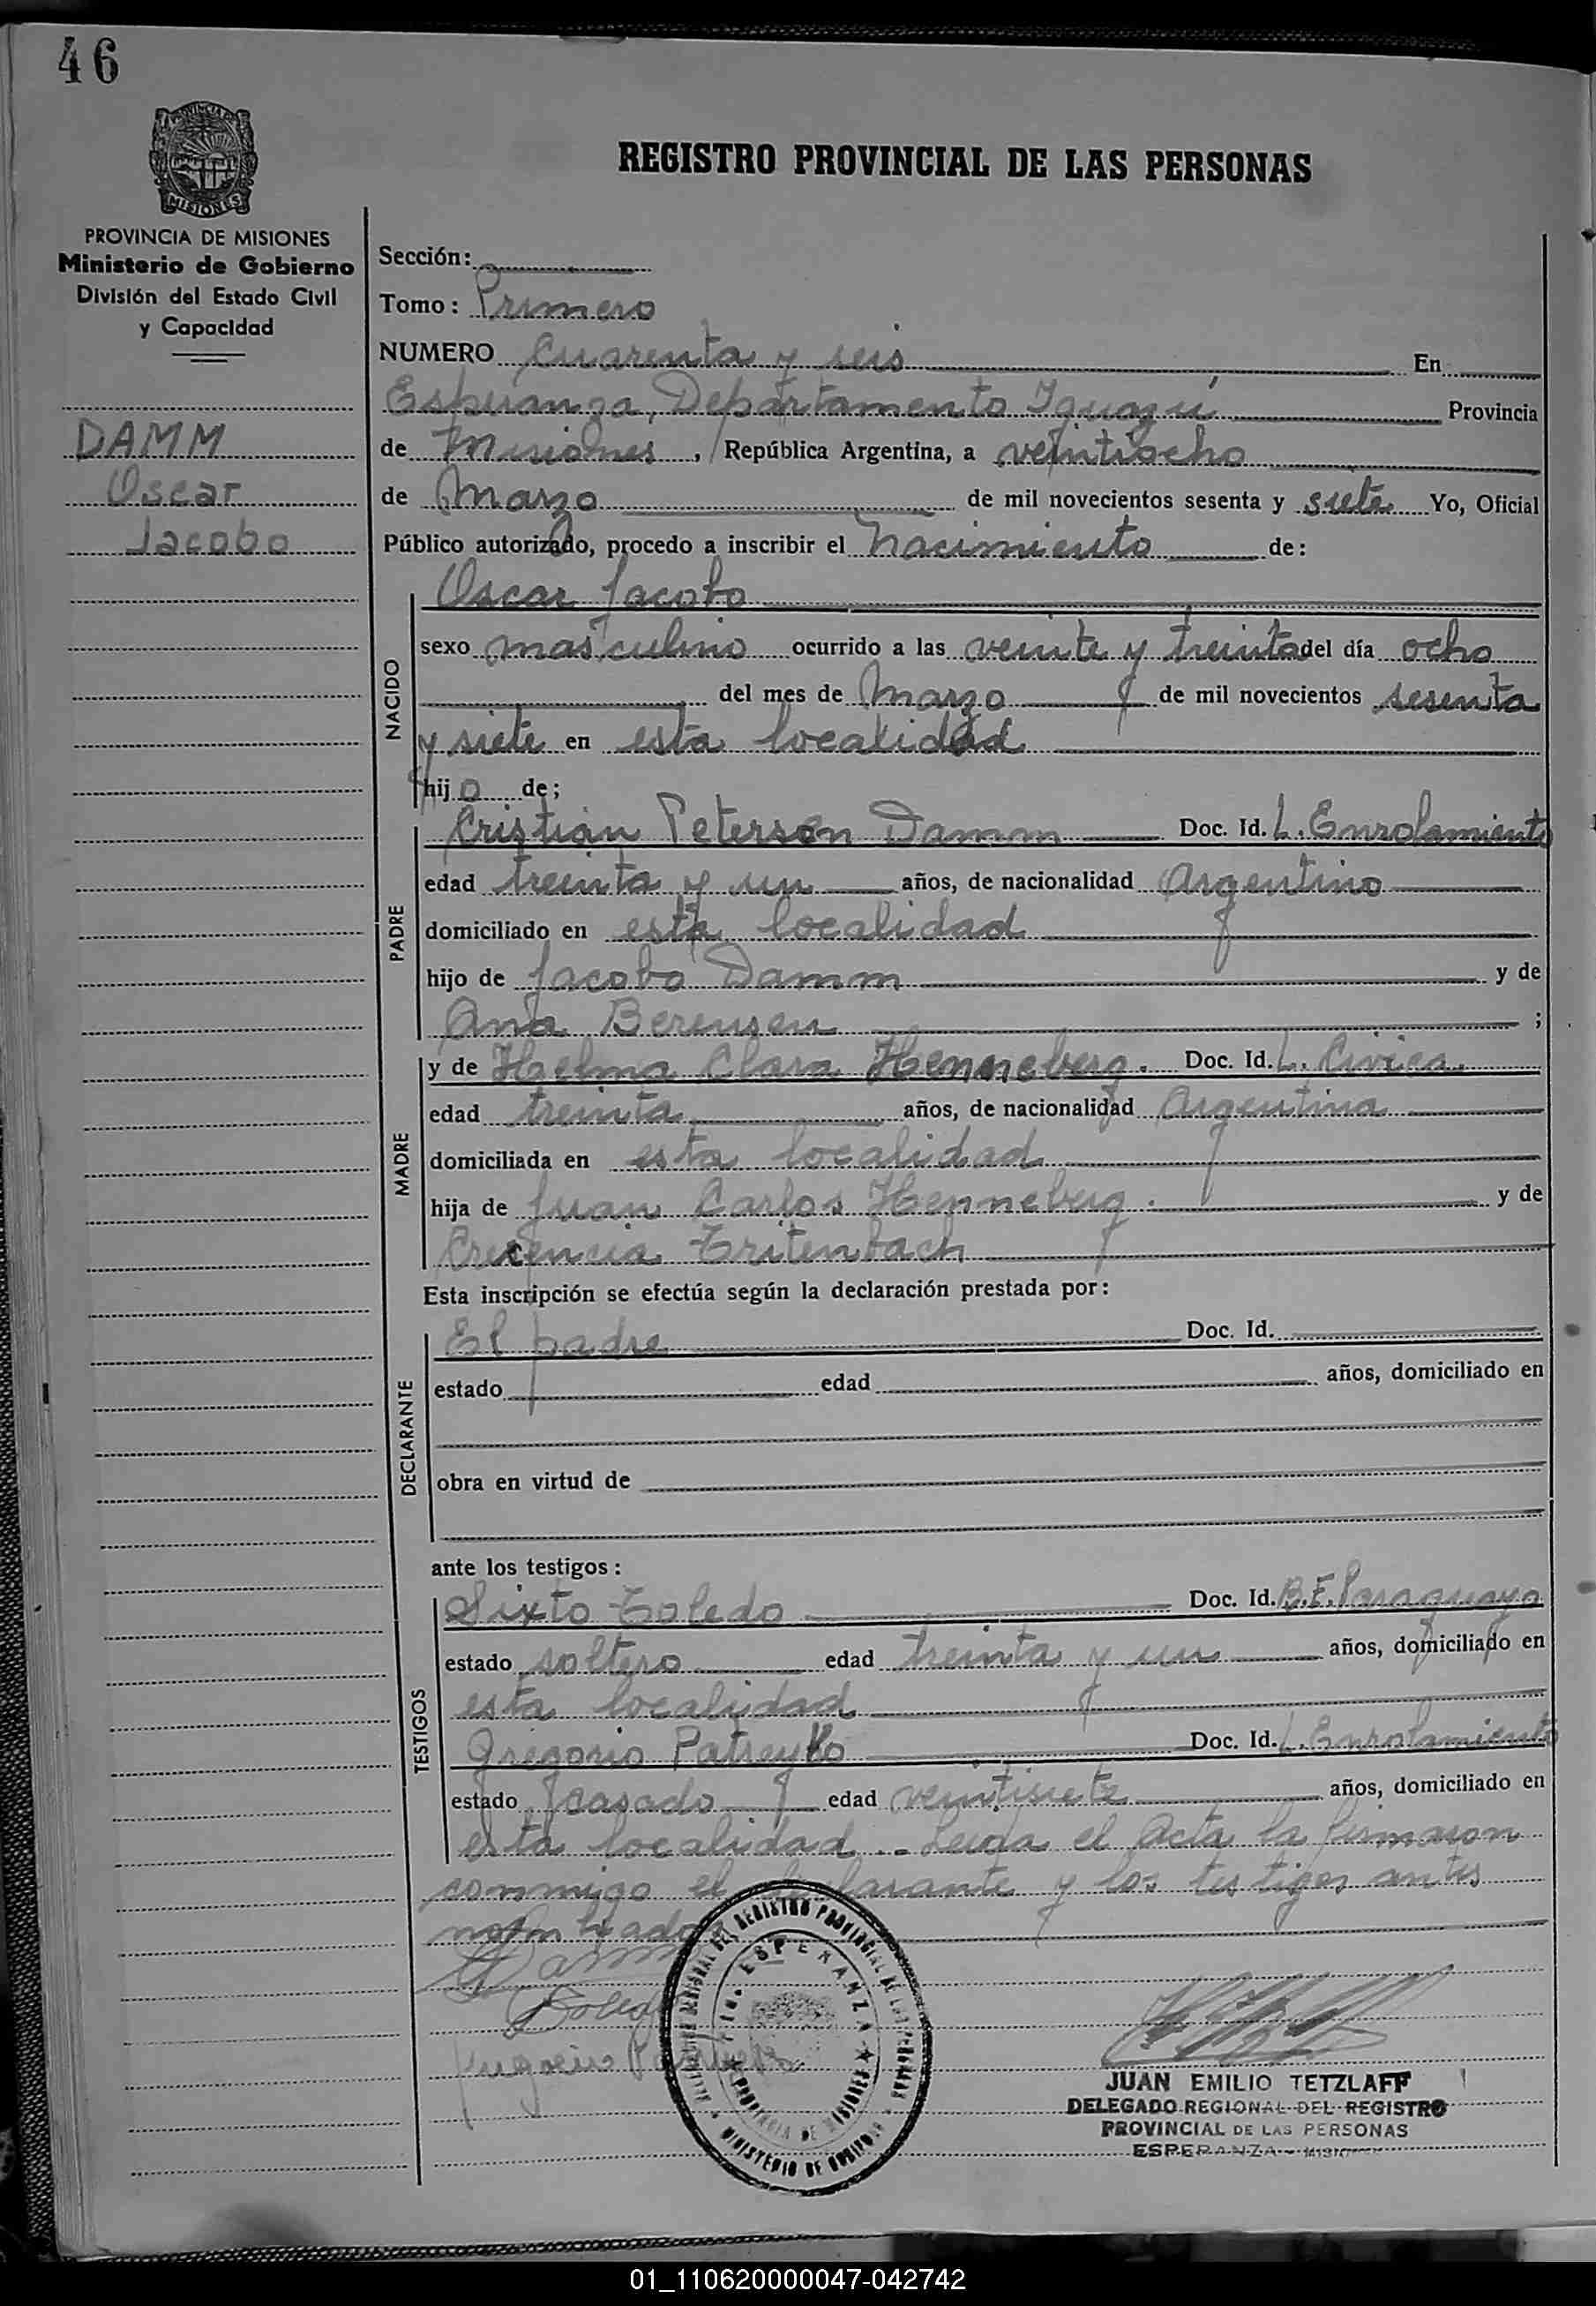 46
PROVINCIA DE MISIONES
Ministerio de Gobierno
División del Estado Civil
y Capacidad
DAMM
Oscar
Jacobo
REGISTRO PROVINCIAL DE LAS PERSONAS
Sección:
Tomo: Primero
NUMERO Cuarenta y seis En
Esperanza, Departamento Iguazú Provincia
de Misiones, República Argentina, a veintiocho
de Marzo de mil novecientos sesenta y siete Yo, Oficial
Público autorizado, procedo a inscribir el Nacimiento de:
NACIDO
Oscar Jacobo
sexo masculino ocurrido a las veinte y treinta del día ocho
del mes de Marzo de mil novecientos sesenta
y siete en esta localidad
hijo de;
PADRE
Cristian Petersen Damm Doc. Id. L. Enrolamiento
edad treinta y un años, de nacionalidad Argentino
domiciliado en esta localidad
hijo de Jacobo Damm y de
Ana Berensen ;
MADRE
y de Helma Clara Henneberg. Doc. Id. L. Civica.
edad treinta años, de nacionalidad Argentina
domiciliada en esta localidad
hija de Juan Carlos Henneberg. y de
Crecencia Tritenbach
Esta inscripción se efectúa según la declaración prestada por:
DECLARANTE
El padre Doc. Id.
estado edad años, domiciliado en
obra en virtud de
ante los testigos:
TESTIGOS
Sixto Toledo Doc. Id. B.E. Paraguaya
estado soltero edad treinta y un años, domiciliado en
esta localidad
Gregorio Patreyko Doc. Id. L. Enrolamiento
estado casado edad veintisiete años, domiciliado en
esta localidad.- Leida el Acta la firmaron
conmigo el declarante y los testigos antes
nombrados
Damm
Toledo
REGISTRO PROVINCIAL DE LAS PERSONAS
ESPERANZA
PROVINCIA DE MISIONES
MINISTERIO DE GOBIERNO
JUAN EMILIO TETZLAFF
DELEGADO REGIONAL DEL REGISTRO
PROVINCIAL DE LAS PERSONAS
ESPERANZA - MISIONES
01_110620000047-042742